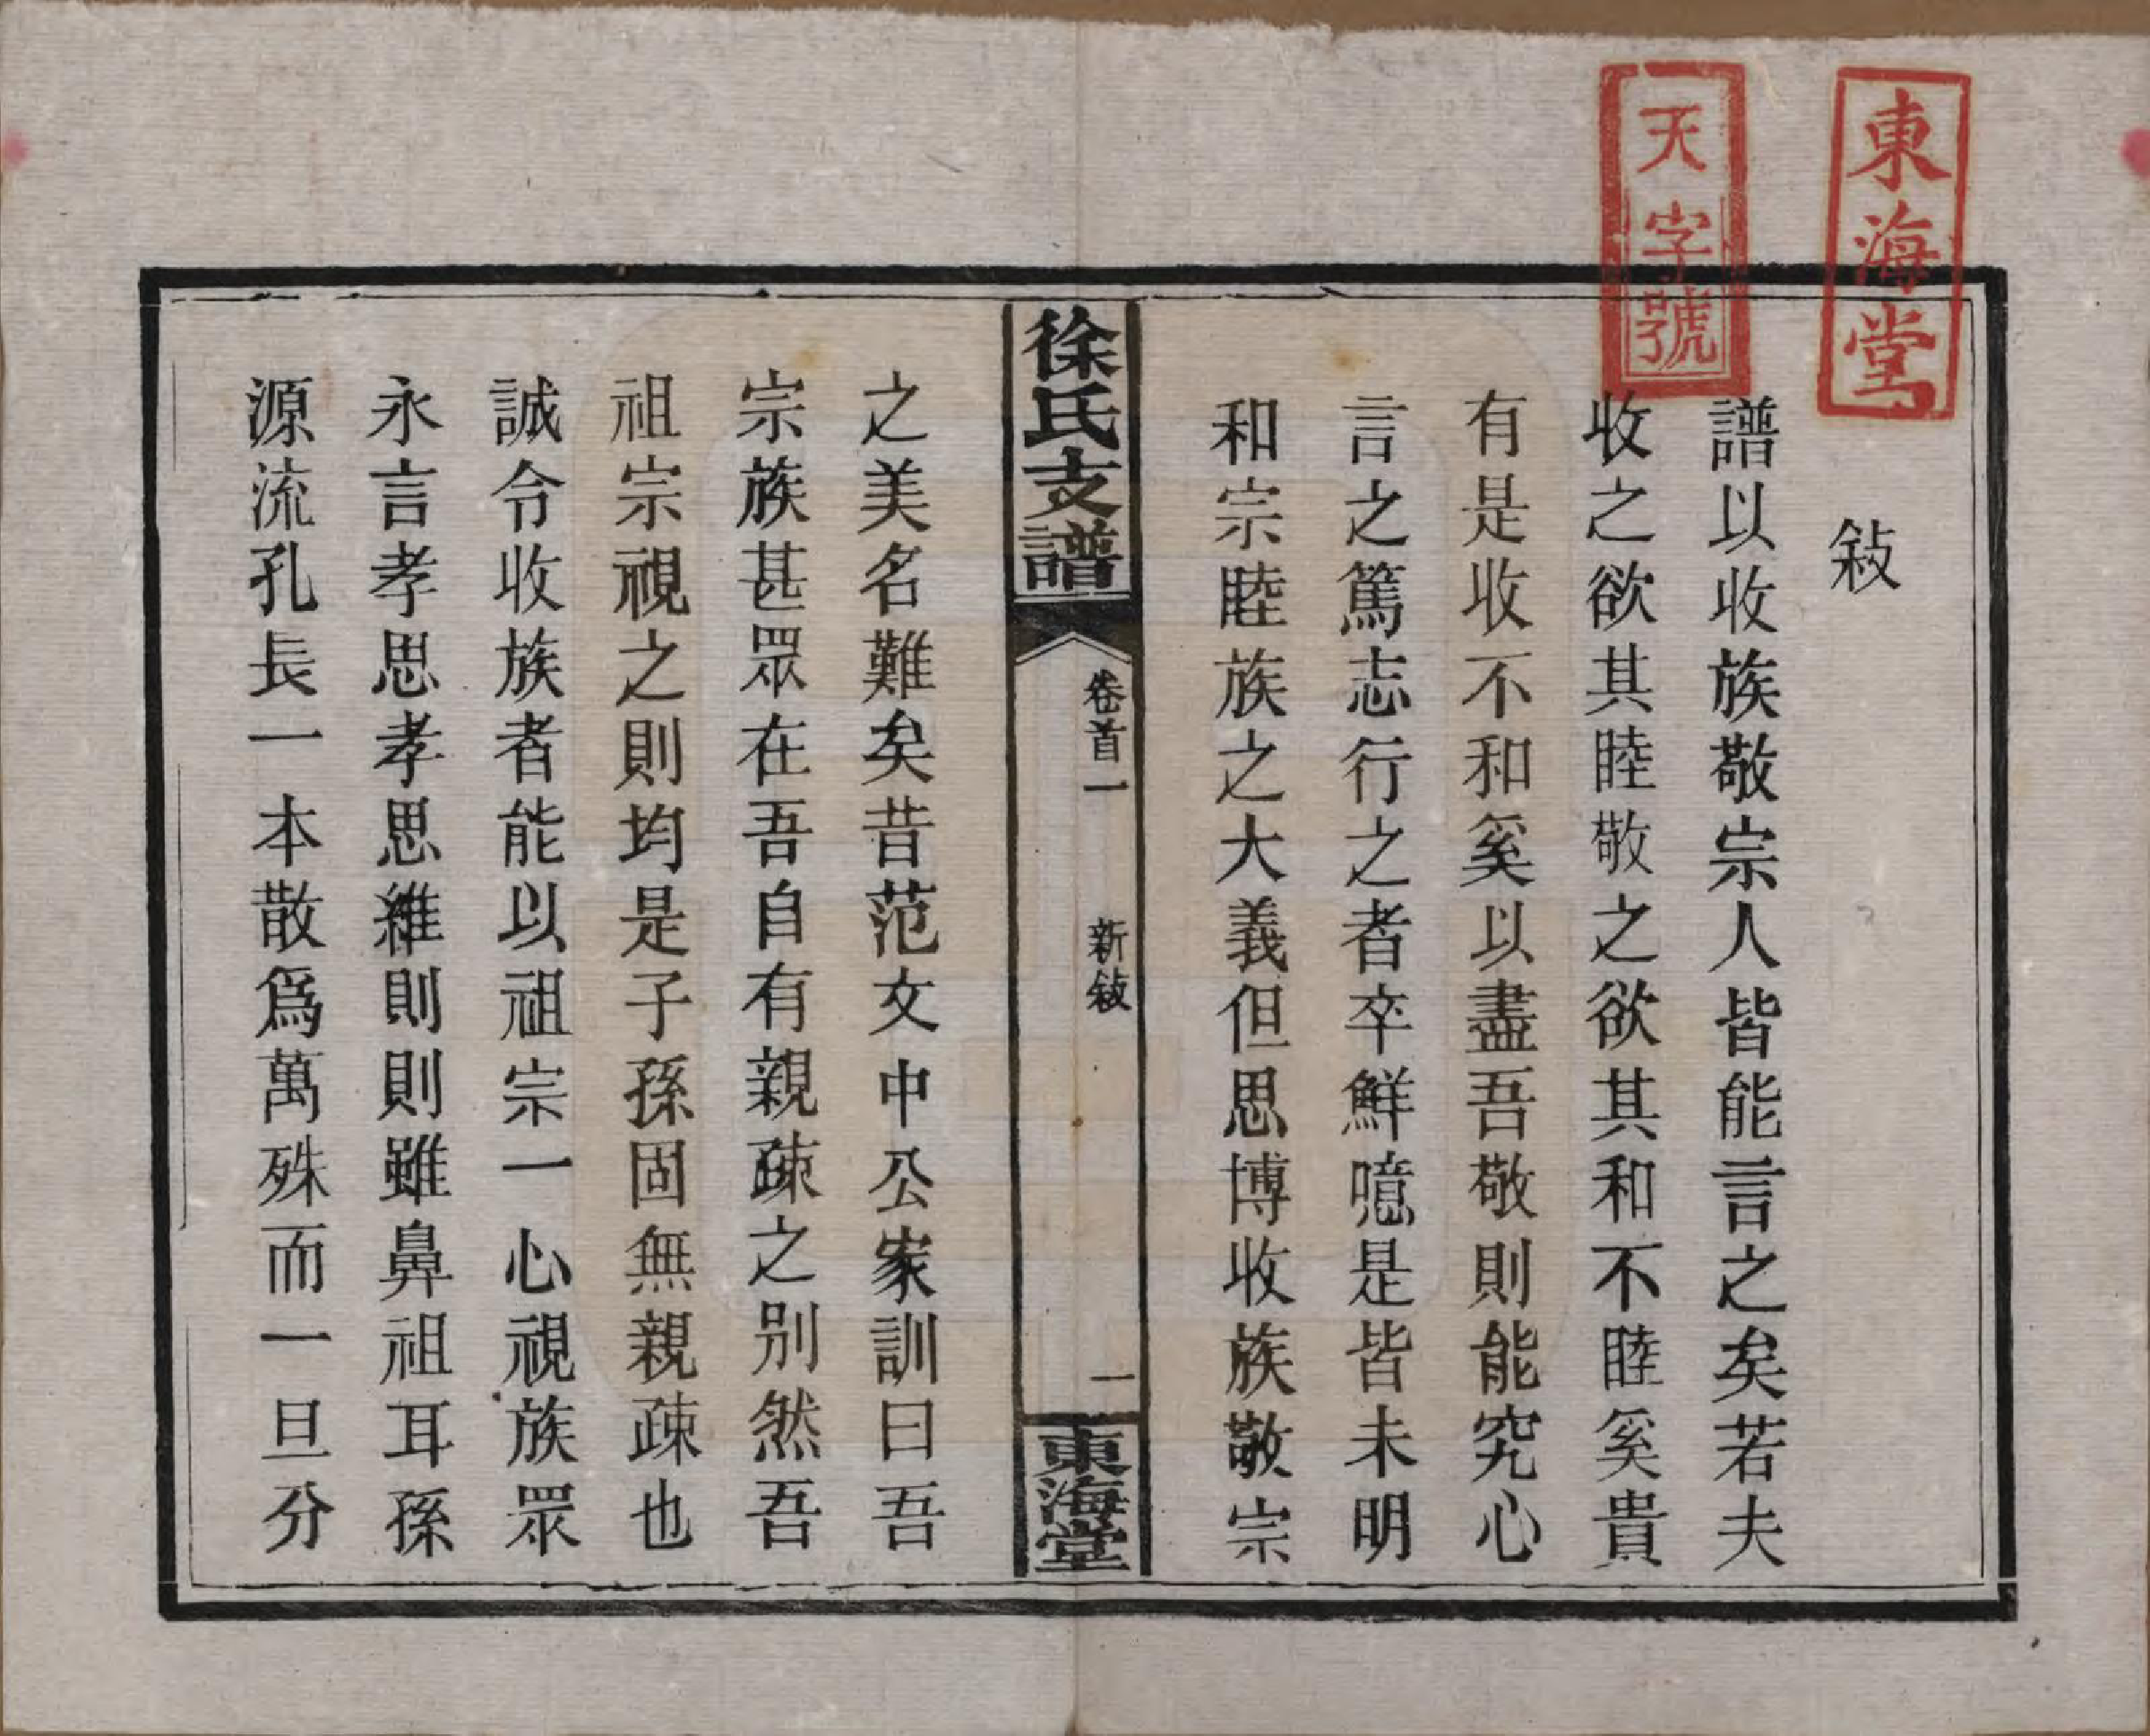 東海堂
天字號
敍
譜以收族敬宗人皆能言之矣若夫
收之欲其睦敬之欲其和不睦奚貴
有是收不和奚以盡吾敬則能究心
言之篤志行之者卒鮮噫是皆未明
和宗睦族之大義但思博收族敬宗
徐氏支譜
卷首一
新敍
一
東海堂
之美名難矣昔范文中公家訓曰吾
宗族甚眾在吾自有親疎之別然吾
祖宗視之則均是子孫固無親疎也
誠令收族者能以祖宗一心視族眾
永言孝思孝思維則則雖鼻祖耳孫
源流孔長一本散爲萬殊而一旦分